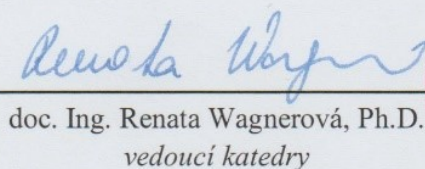 Renata Wagner
doc. Ing. Renata Wagnerová, Ph.D.
vedoucí katedry